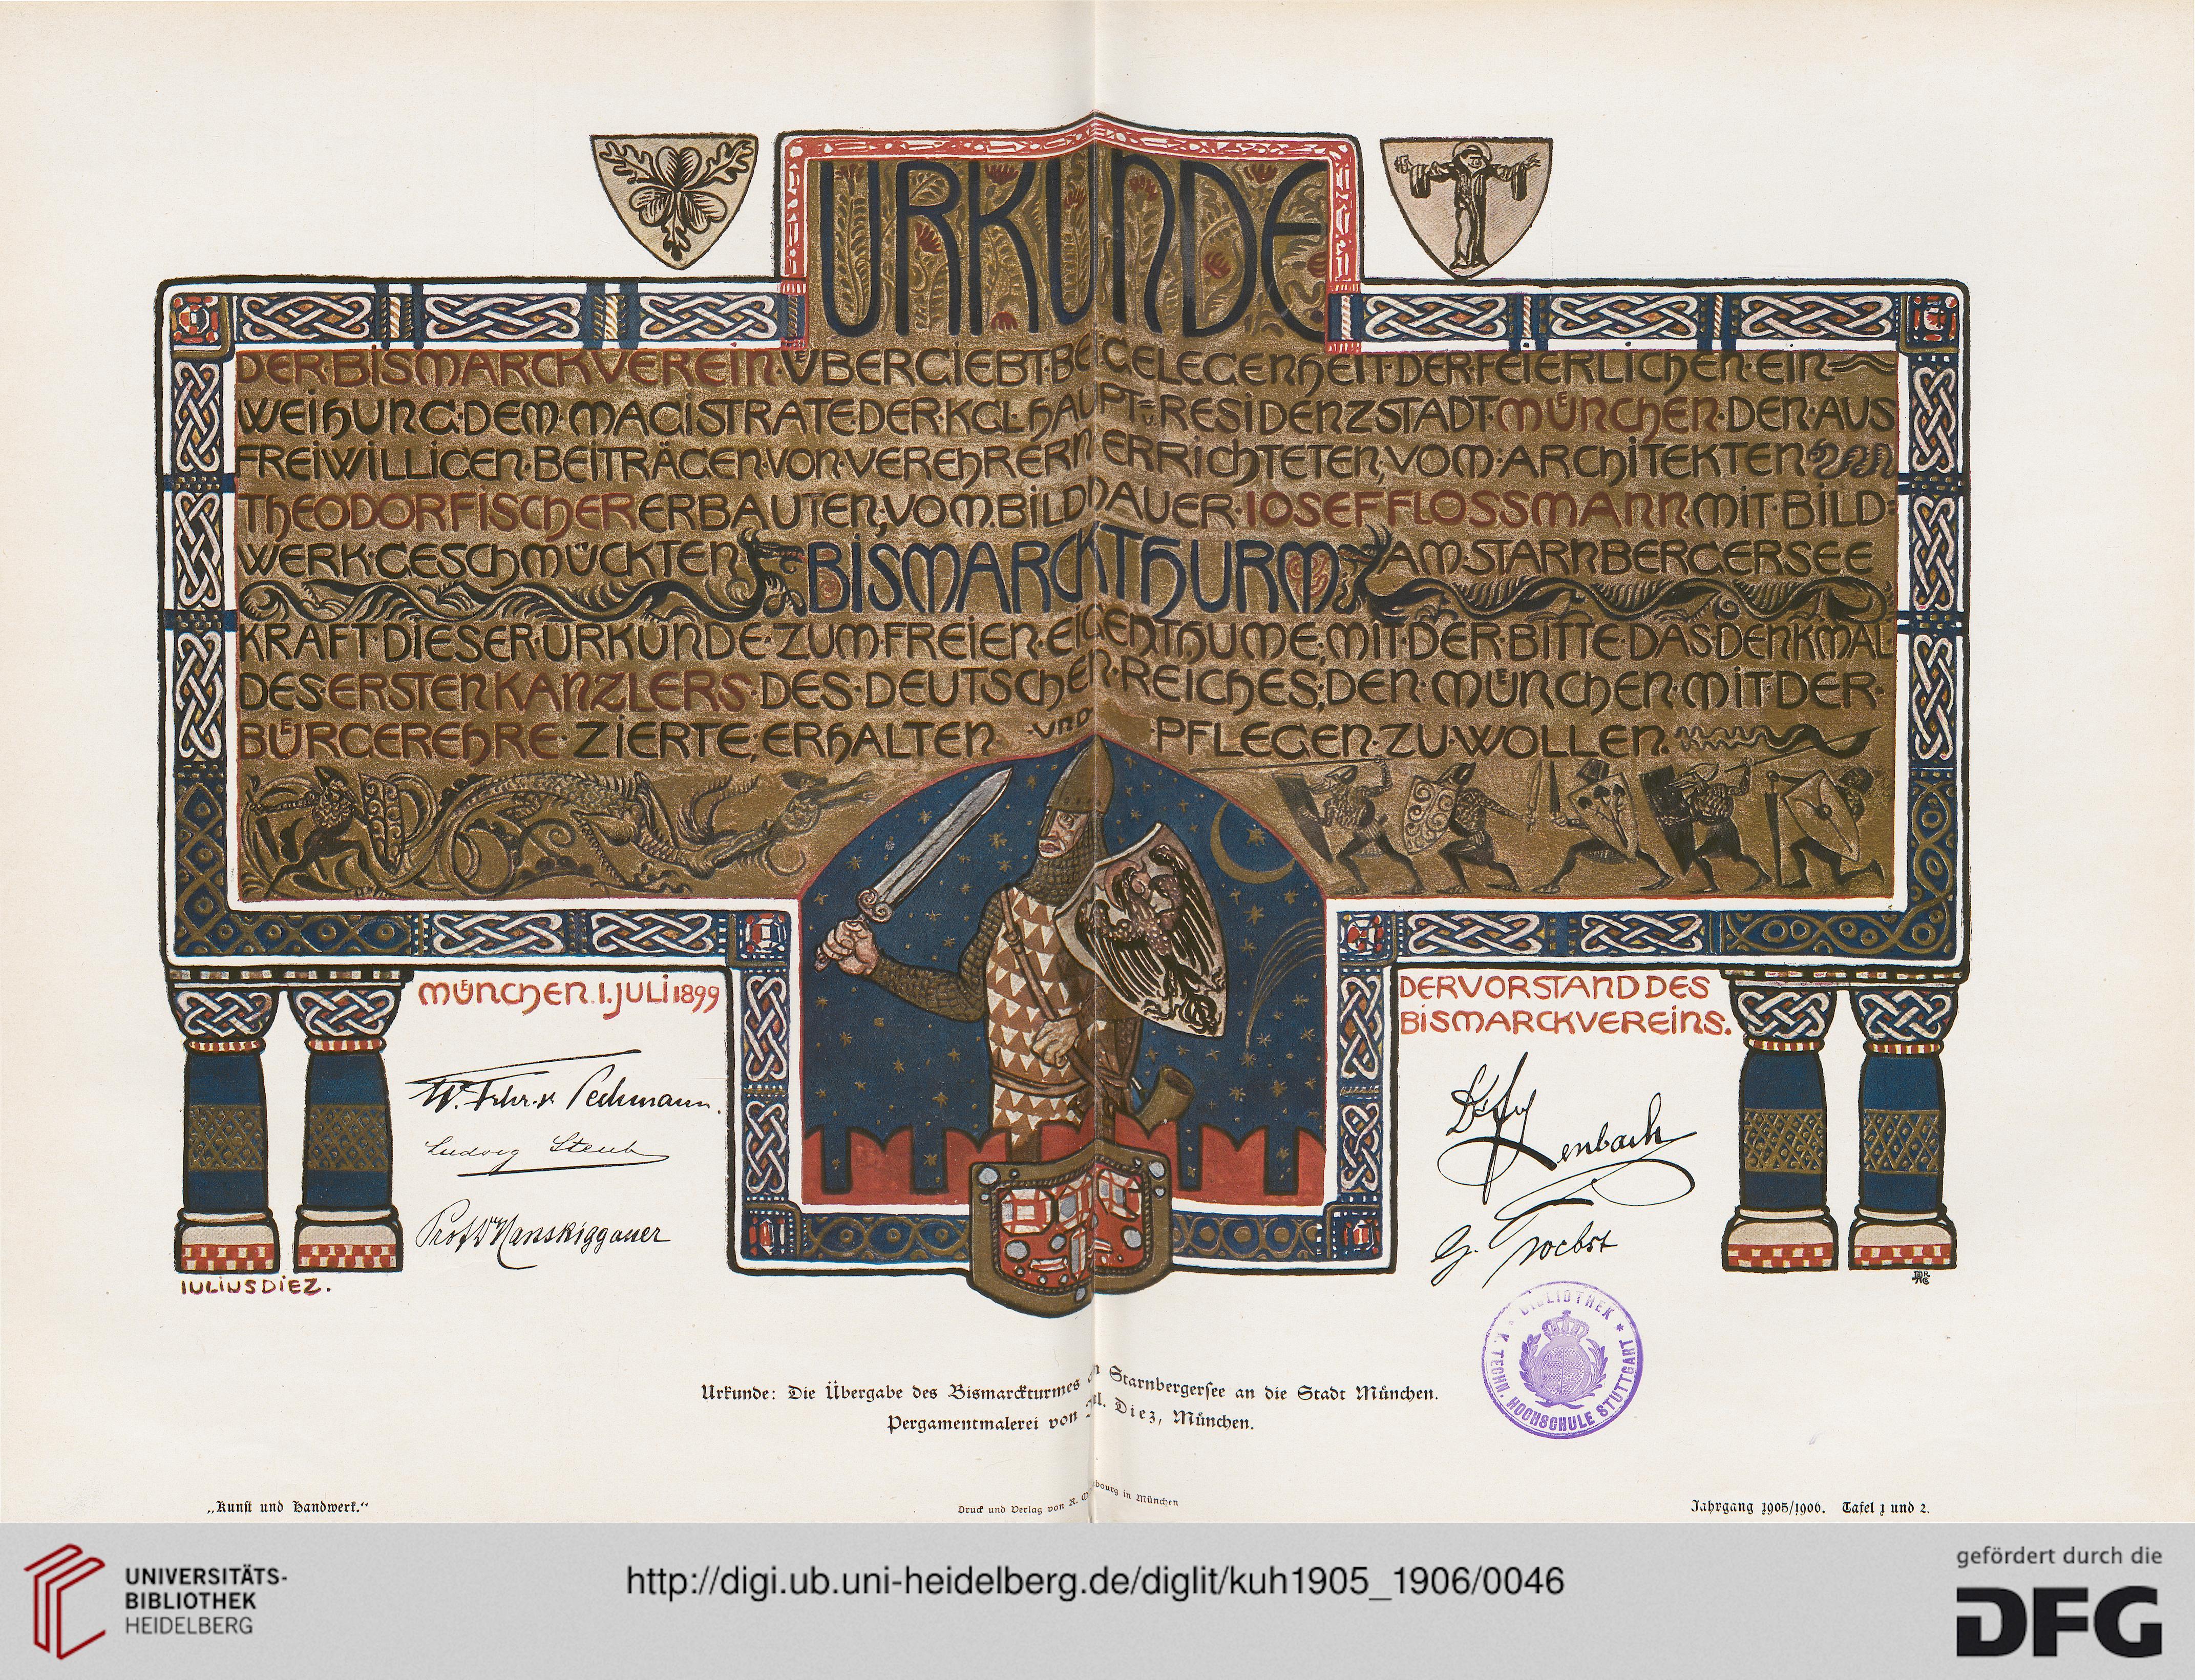 URKUNDE
DER·BISMARCKVEREIN·ÜBERGIEBT·BE·GELEGENHEIT·DER·FEIERLICHEN·EIN
WEIHUNG·DEM·MAGISTRATE·DER·KGL·HAUPT=U.RESIDENZSTADT·MÜNCHEN·DEN·AUS
FREIWILLIGEN·BEITRÄGEN·VON·VEREHRERN ERRICHTETEN, VOM·ARCHITEKTEN
THEODOR FISCHER ERBAUTEN, VOM·BILDHAUER·IOSEF FLOSSMANN MIT·BILD=
WERK·GESCHMÜCKTEN BISMARCKTHURM AM STARNBERGERSEE
KRAFT·DIESER·URKUNDE·ZUM·FREIEN·EIGENTHUME, MIT·DER·BITTE·DAS DENKMAL
DES ERSTEN KANZLERS·DES·DEUTSCHEN·REICHES, DEN·MÜNCHEN·MIT·DER·
BÜRGEREHRE·ZIERTE, ERHALTEN·UND PFLEGEN·ZU·WOLLEN.
MÜNCHEN. 1. JULI 1899
W. Frhr. v. Pechmann.
Ludwig Steub
DER VORSTAND DES
BISMARCKVEREINS.
Lenbach
IULIUS DIEZ.
* BIBLIOTHEK * K. TECHN. HOCHSCHULE STUTTGART
Urkunde: Die Übergabe des Bismarckturmes Starnbergersee an die Stadt München.
Pergamentmalerei von Jul. Diez, München.
„Kunst und Handwerk.“
Druck und Verlag von R. in München
Jahrgang 1905/1906. Tafel 1 und 2.
UNIVERSITÄTS-
BIBLIOTHEK
HEIDELBERG
http://digi.ub.uni-heidelberg.de/diglit/kuh1905_1906/0046
gefördert durch die
DFG